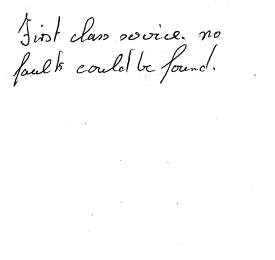 First class service. no
faults could be found.